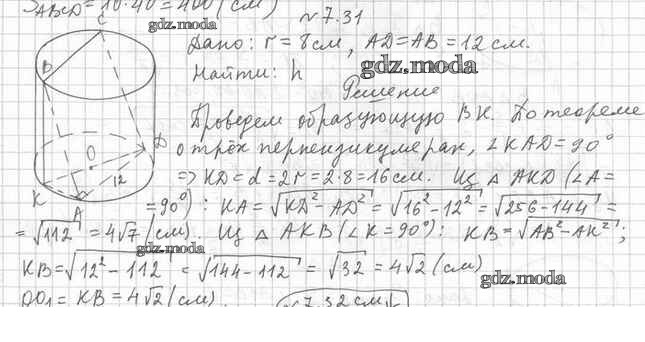 S_ABCD = 10·40 = 400 (см)
gdz.moda
№ 7.31
Дано: r = 8 см, AD = AB = 12 см.
Найти: h
gdz.moda
Решение
Проведем образующую BK. По теореме
о трёх перпендикулярах, ∠KAD = 90°
⇒ KD = d = 2r = 2·8 = 16 см. Из △ AKD (∠A =
= 90°): KA = √KD² - AD² = √16² - 12² = √256 - 144 =
= √112 = 4√7 (см). Из △ AKB (∠K = 90°): KB = √AB² - AK²;
gdz.moda
KB = √12² - 112 = √144 - 112 = √32 = 4√2 (см)
gdz.moda
OO₁ = KB = 4√2 (см).
№ 7.32
C
B
O
D
K
A
12